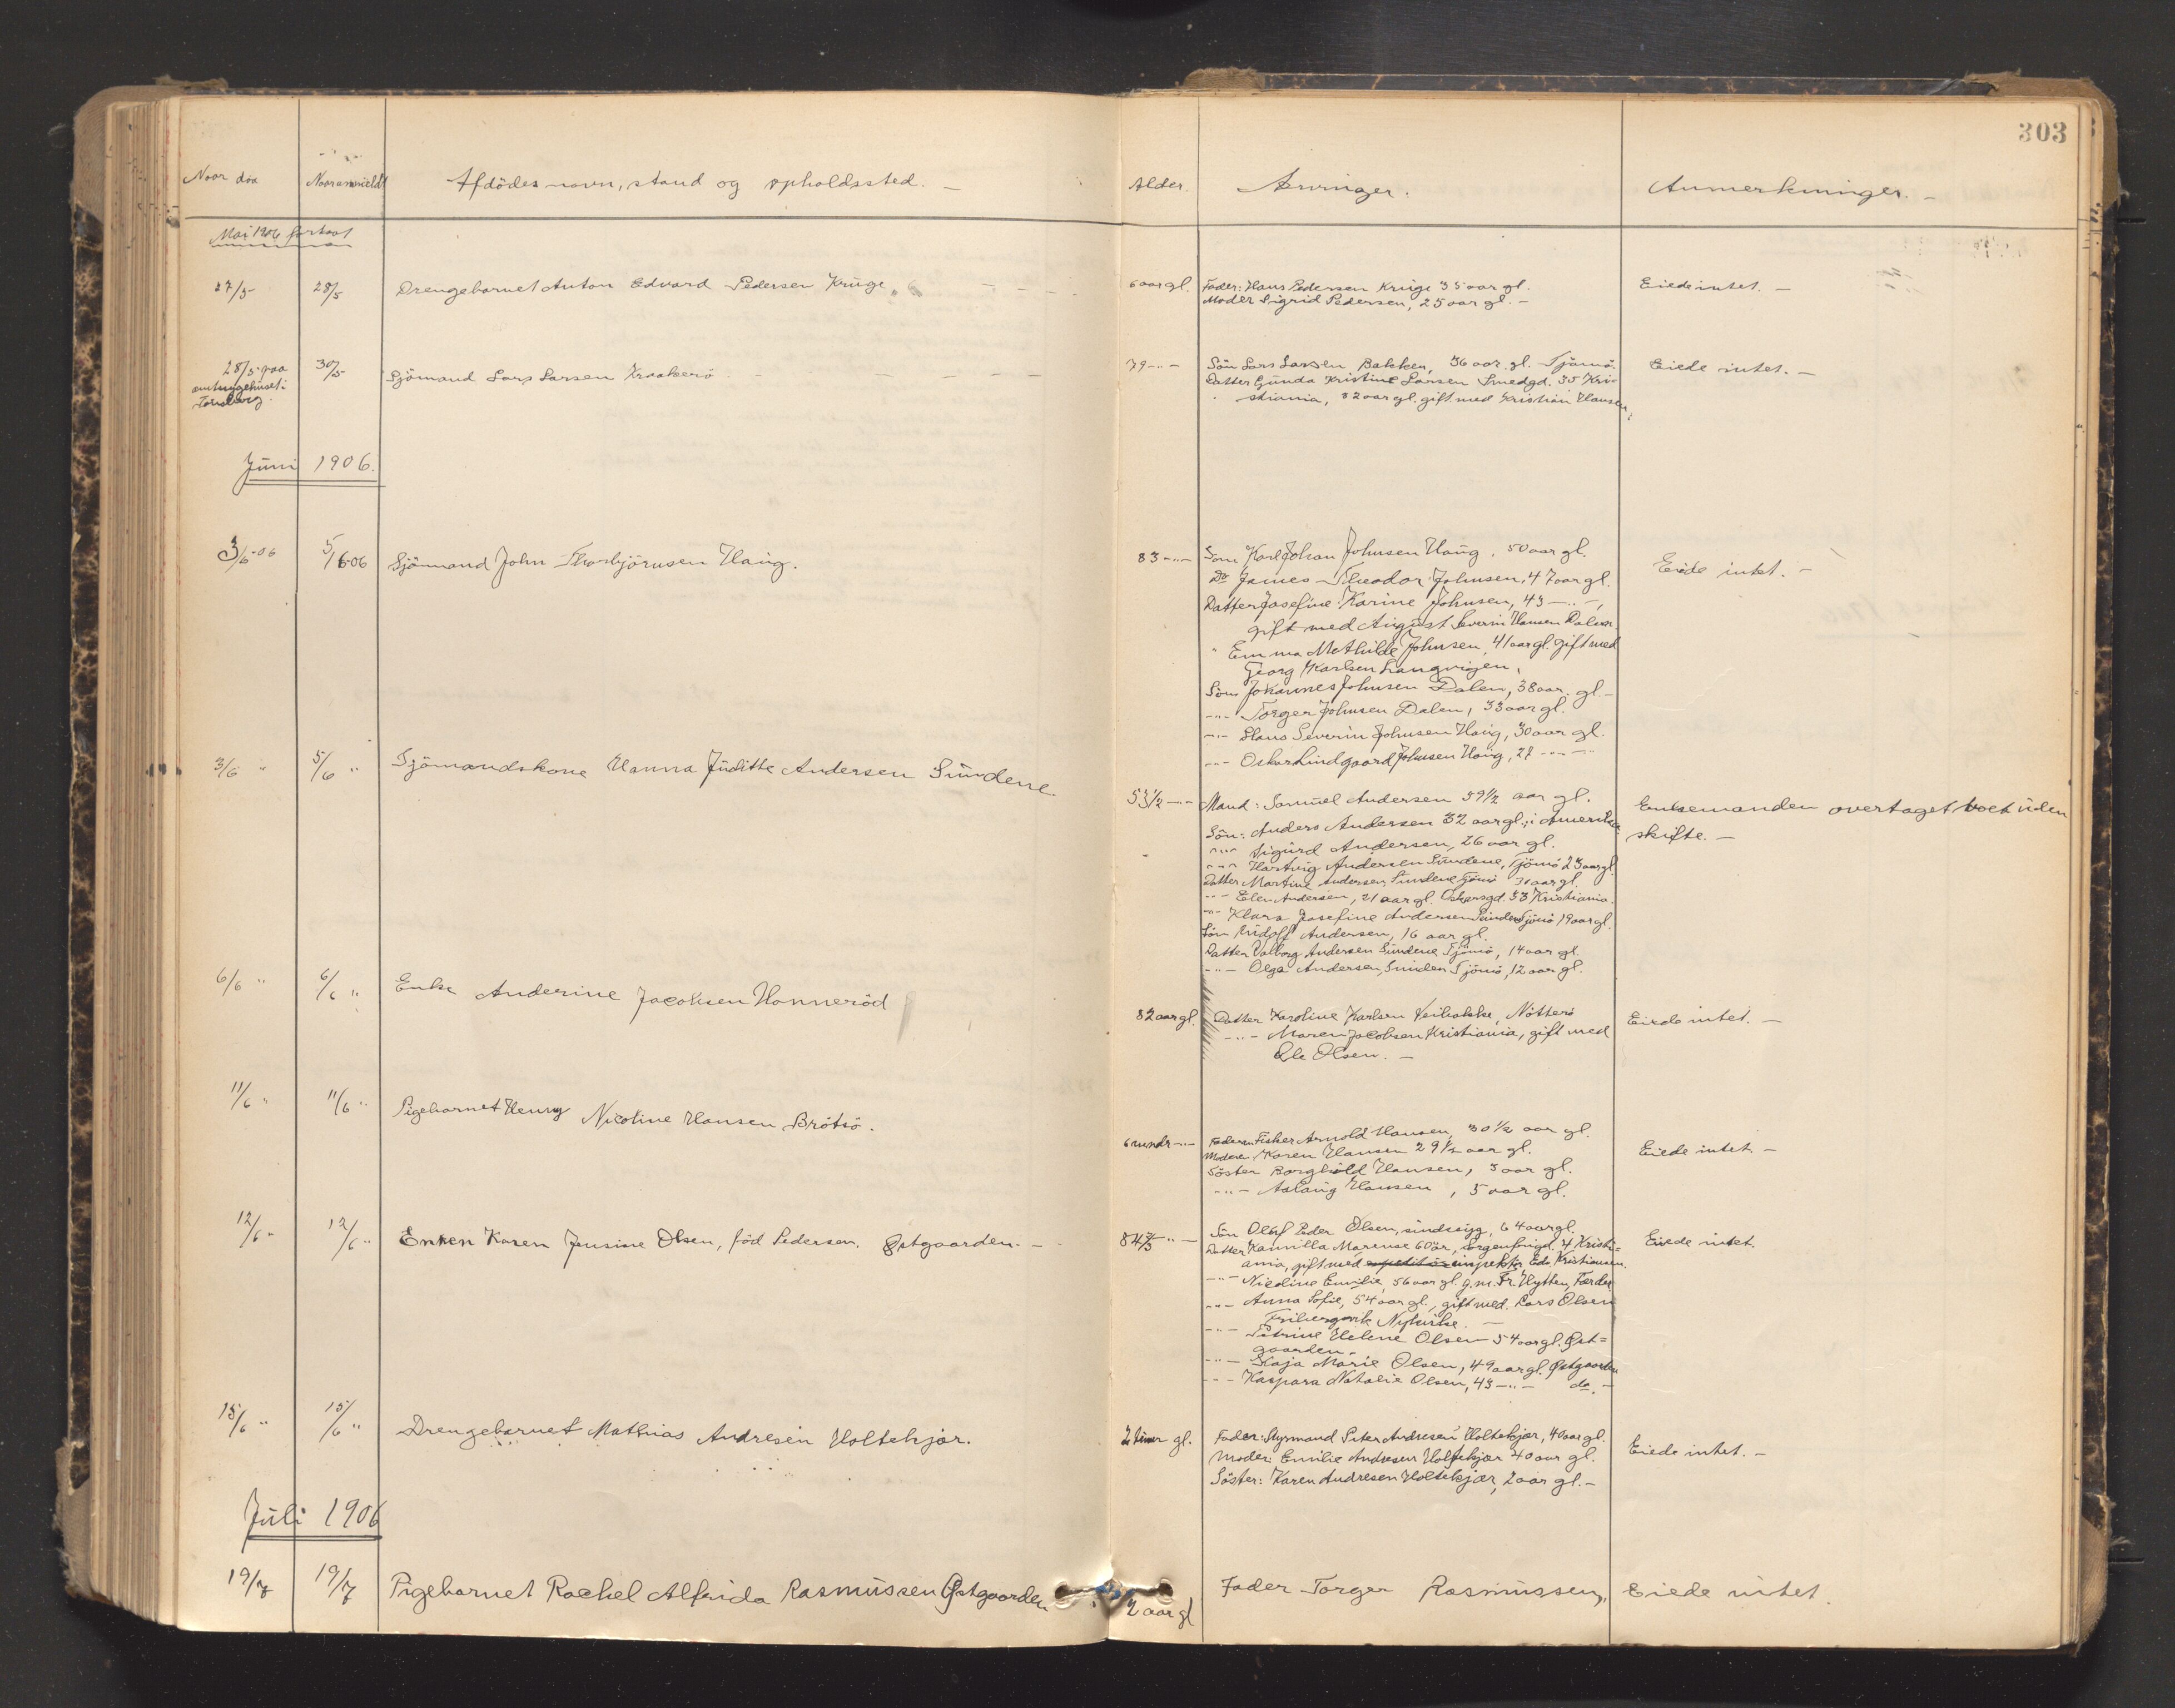 303
Naar død Naar anmeldt Afdödes navn, stand og opholdssted. — Alder. Arvinger. Anmerkninger. —
Mai 1906 fortsat
27/5 28/5 Drengebarnet Anton Edvard Pedersen Kruge 6 aar gl. Fader: Hans Pedersen Kruge 35 aar gl. Eiede intet. —
Moder Sigrid Pedersen, 25 aar gl. —
28/5 paa 30/5 Sjömand Lars Larsen Kraakerö 79 -"- Sön Lars Larsen Bakken, 36 aar gl. Tjömö. Eiede intet. —
amtssygehuset i Datter Gunda Kristine Larsen Smedgd. 35 Kri-
Tönsberg. stiania, 32 aar gl. gift med Kristian Hansen.
Juni 1906.
3/6-06 5/6-06 Sjömand John Thorbjörnsen Haug. 83 -"- Sön Karl Johan Johnsen Haug, 50 aar gl. Eiede intet. —
Do James Theodor Johnsen, 47 aar gl.
Datter Josefine Karine Johnsen, 43 -"-,
gift med August Severin Hansen Dalen.
" Emma Mathilde Johnsen, 41 aar gl. gift med
Georg Karlsen Langvigen,
Sön Johannes Johnsen Dalen, 38 aar gl. —
-"- Torger Johnsen Dalen, 33 aar gl.
-"- Hans Severin Johnsen Haug, 30 aar gl.
-"- Oskar Lindgaard Johnsen Haug, 27 -"-
3/6 " 5/6 " Sjömandskone Hanna Juditte Andersen Sundene 53 1/2 -"- Mand: Samuel Andersen 59 1/2 aar gl. Enkemanden overtaget boet uden
Sön: Anders Andersen 32 aar gl., i Amerika skifte. —
-"- Sigurd Andersen, 26 aar gl.
-"- Hartvig Andersen Sundene, Tjömö 23 aar gl.
Datter Martine Andersen Sundene Tjömö 30 aar gl.
-"- Elen Andersen, 21 aar gl. Oskarsgd. 33 Kristiania.
-"- Klara Josefine Andersen Sunden Tjömö 19 aar gl.
Sön Rudolf Andersen, 16 aar gl.
Datter Valborg Andersen Sundene Tjömö, 14 aar gl.
-"- Olga Andersen, Sunden Tjömö, 12 aar gl.
6/6 " 6/6 " Enke Anderine Jacobsen Honneröd 82 aar gl. Datter Karoline Karlsen Nötterö Eiede intet. —
-"- Maren Jacobsen Kristiania, gift med
Ole Olsen. —
11/6 " 11/6 " Pigebarnet Henny Nicoline Hansen Brötsö. 6 mndr -"- Faderen Fisker Arnold Hansen, 30 1/2 aar gl. Eiede intet. —
Moderen, Karen Hansen 29 1/2 aar gl.
Söster Borghild Hansen, 3 aar gl.
-"- Aslaug Hansen, 5 aar gl.
12/6 " 12/6 " Enken Karen Jensine Olsen, föd Pedersen, Østgaarden. — 84 -"- Sön Oluf Peder Olsen, sindssyg, 64 aar gl. Eiede intet.
Datter Kamilla Marense 60 år, Sorgenfrigd. 4 Kristi-
ania, gift med inspektör Edv. Kristiansen.
-"- Nicoline Emilie, 56 aar gl. g. m. Fr. Hytten, Færder
-"- Anna Sofie, 54 aar gl., gift med Lars Olsen
Nykirke. —
-"- Petrine Helene Olsen 54 aar gl. Øst=
gaarden. —
-"- Kaja Marie Olsen, 49 aar gl. Østgaarden
-"- Kaspara Natalie Olsen, 43 -"- do. —
15/6 " 15/6 " Drengebarnet Mathias Andresen Holtekjær. 2 timer gl. Fader: Styrmand Peter Andresen Holtekjær, 40 aar gl. Eiede intet. —
Moder: Emilie Andresen Holtekjær 40 aar gl.
Söster: Karen Andresen Holtekjær, 2 aar gl. —
Juli 1906
19/7 19/7 Pigebarnet Rachel Alfrida Rasmussen Østgaarden 2 aar gl Fader Torger Rasmussen, Eiede intet.